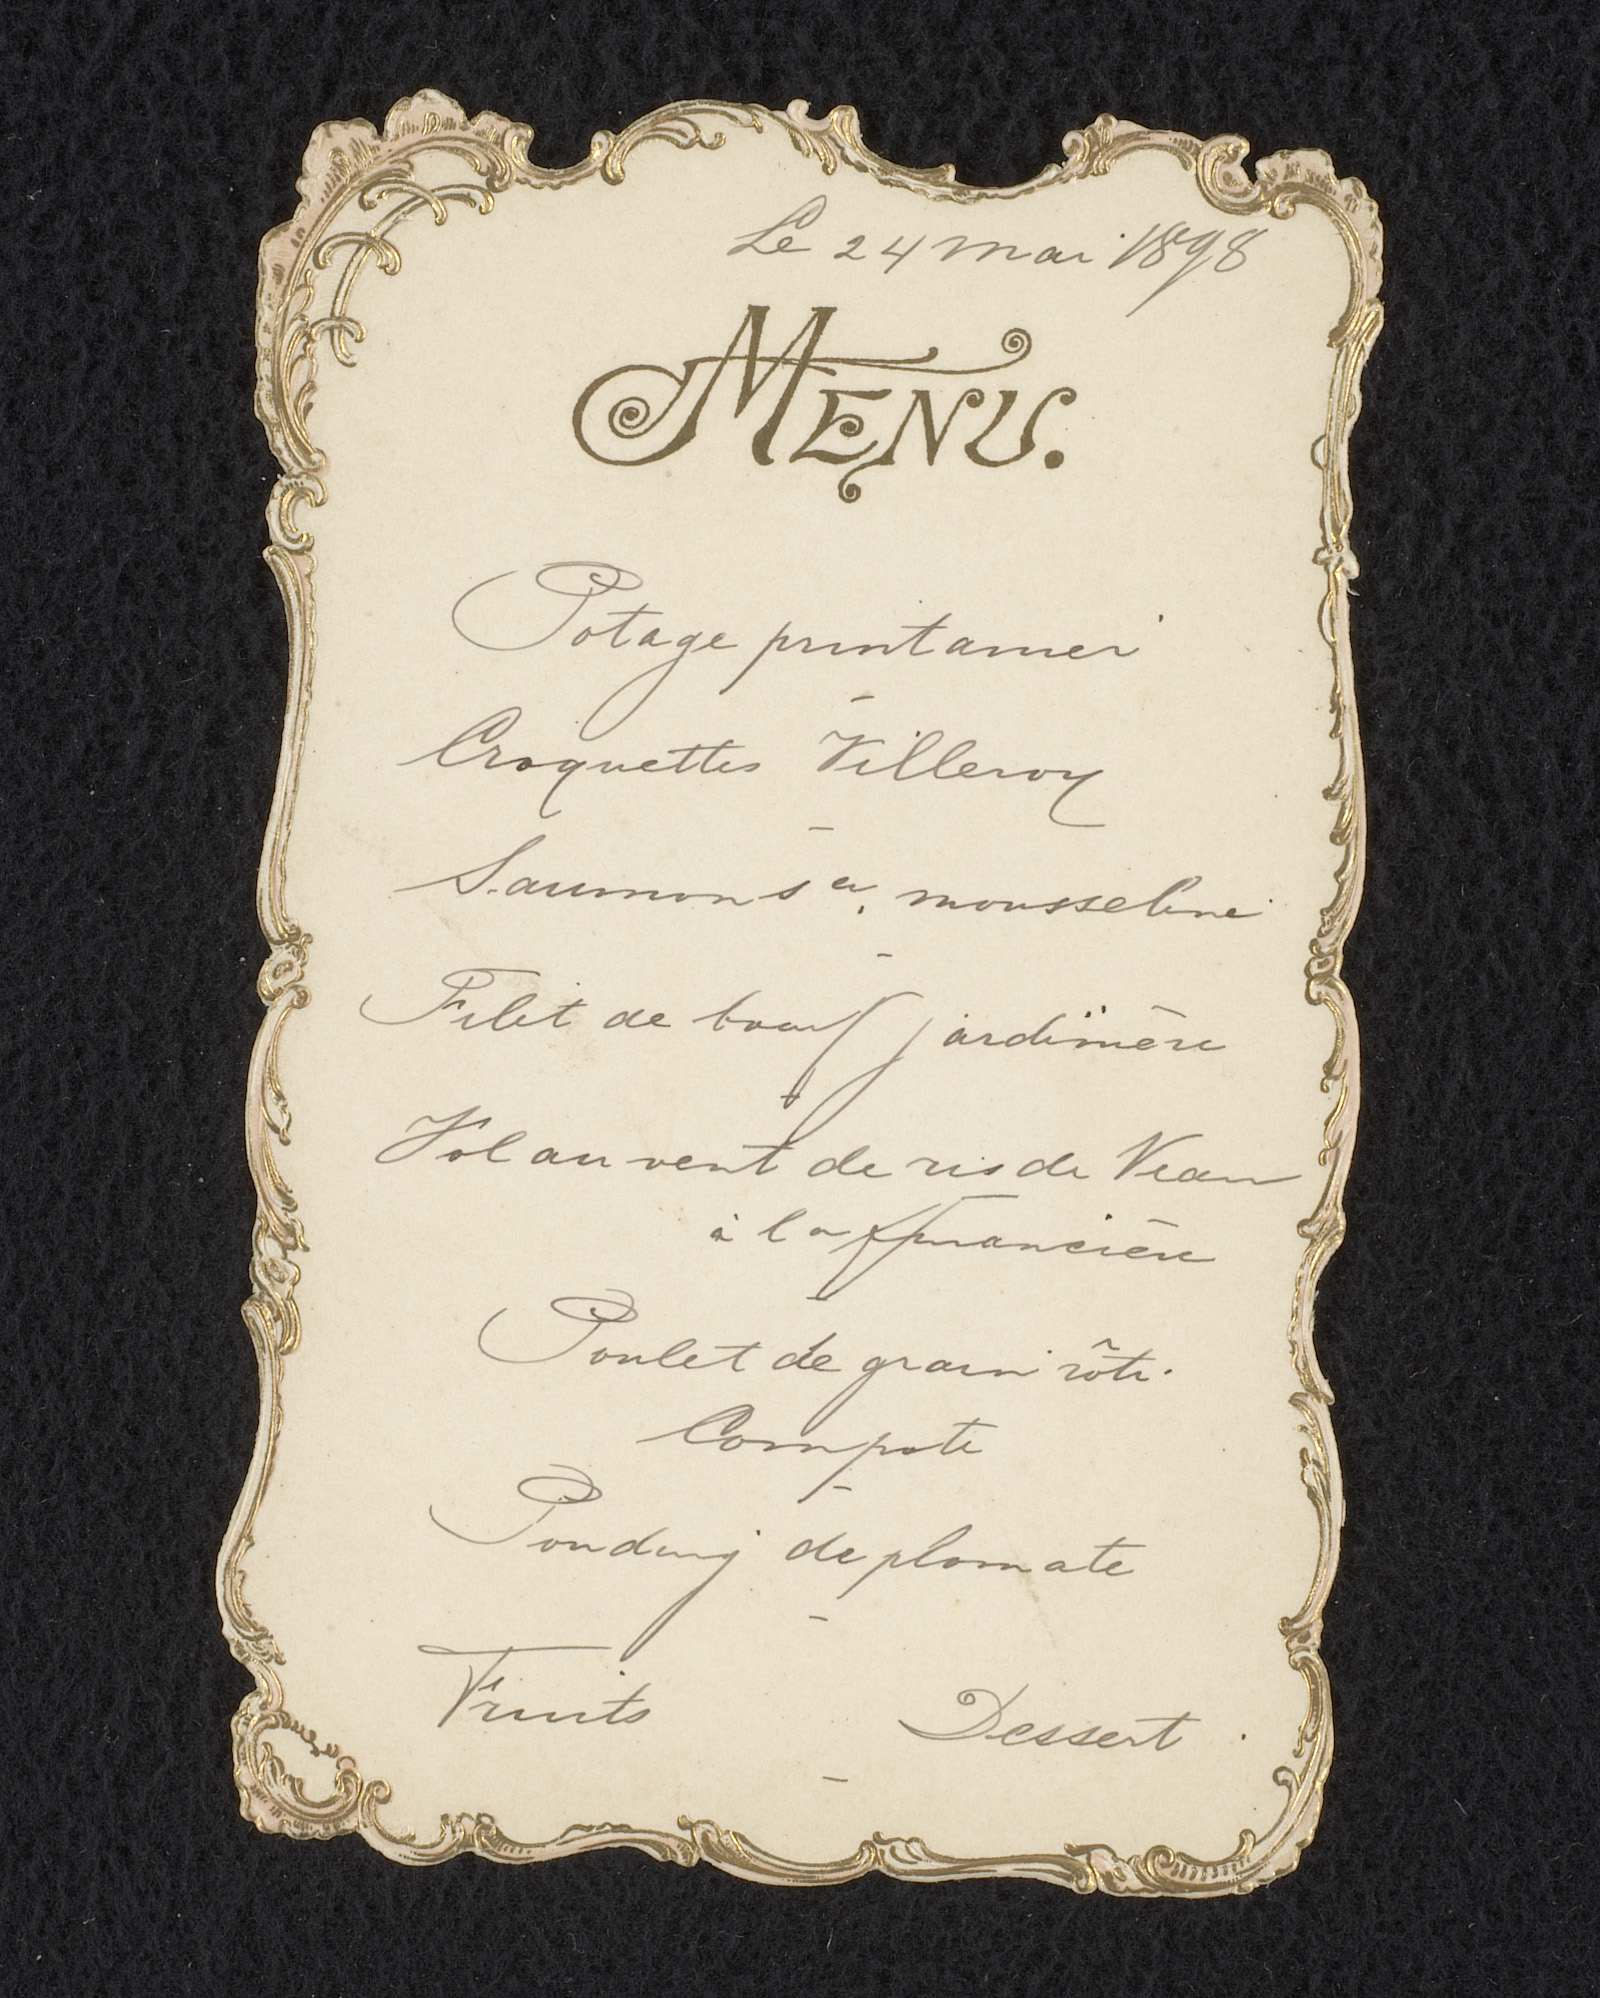 Le 24 mai 1898
MENU.
Potage printanier
Croquettes Villeroy
Saumon sce. mousseline
Filet de bœuf jardinière
Vol au vent de ris de Veau
à la financière
Poulet de grain rôti.
Compote
Pouding diplomate
Fruits - Dessert.